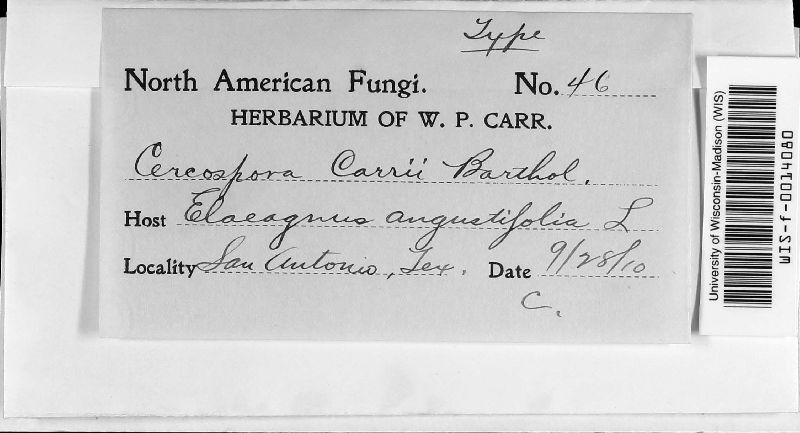 Type
North American Fungi. No. 46
HERBARIUM OF W. P. CARR.
Cercospora Carrii Barthol.
Host Elaeagnus angustifolia L
Locality San Antonio, Tex. Date 9/28/10
C.
University of Wisconsin-Madison (WIS)
WIS-f-0014080